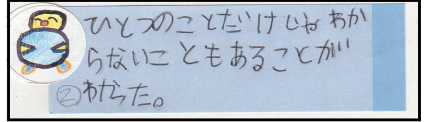 ひとつのことだけじゃわか
らないこともあることが
②わらた。